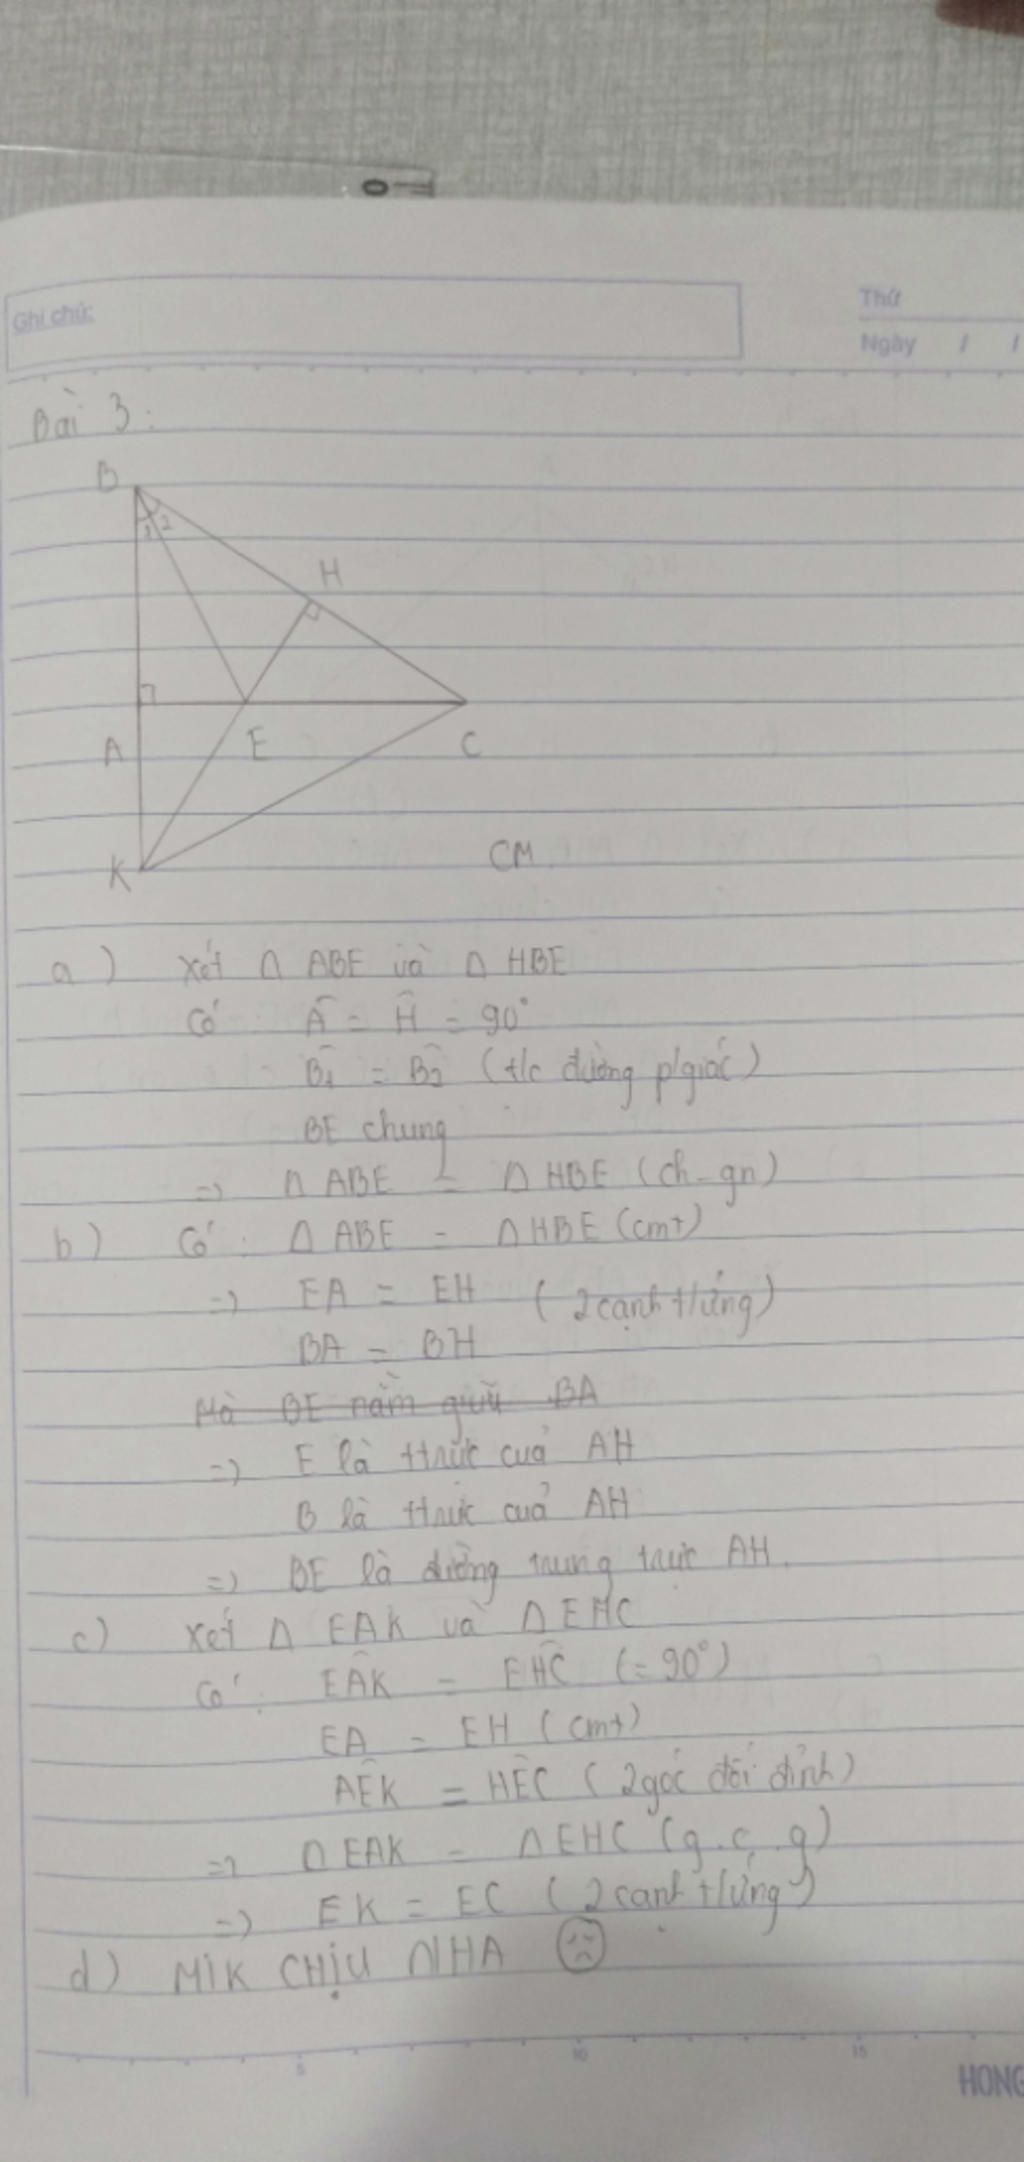 Ghi chú:
Thứ
Ngày / /
Bài 3:
B
1 2
H
A
E
C
K
CM
a) Xét Δ ABE và Δ HBE
Có: Â = Ĥ = 90°
B̂₁ = B̂₂ (t/c đường p/giác)
BE chung
=> Δ ABE = Δ HBE (ch-gn)
b) Có: Δ ABE = Δ HBE (cmt)
=> EA = EH (2 cạnh t/ứng)
BA = BH
Mà BE nằm giữa BA
=> E là tt của AH
B là tt của AH
=> BE là đường trung trực AH.
c) Xét Δ EAK và Δ EHC
Có: EÂK = EĤC (= 90°)
EA = EH (cmt)
AÊK = HÊC (2 góc đối đỉnh)
=> Δ EAK = Δ EHC (g.c.g)
=> EK = EC (2 cạnh t/ứng)
d) MIK CHỊU NHA
5 10 15
HONG